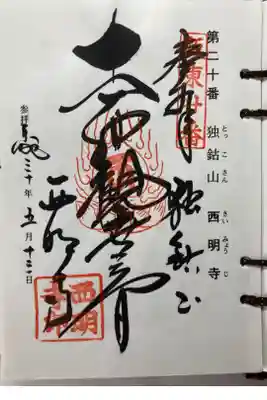 第二十番 独鈷山 西明寺
とっこさん さいみょうじ
坂東廿番
奉拝 独鈷山
十一面観世音
西明寺
西明寺印
参拝 平成三十年五月十三日